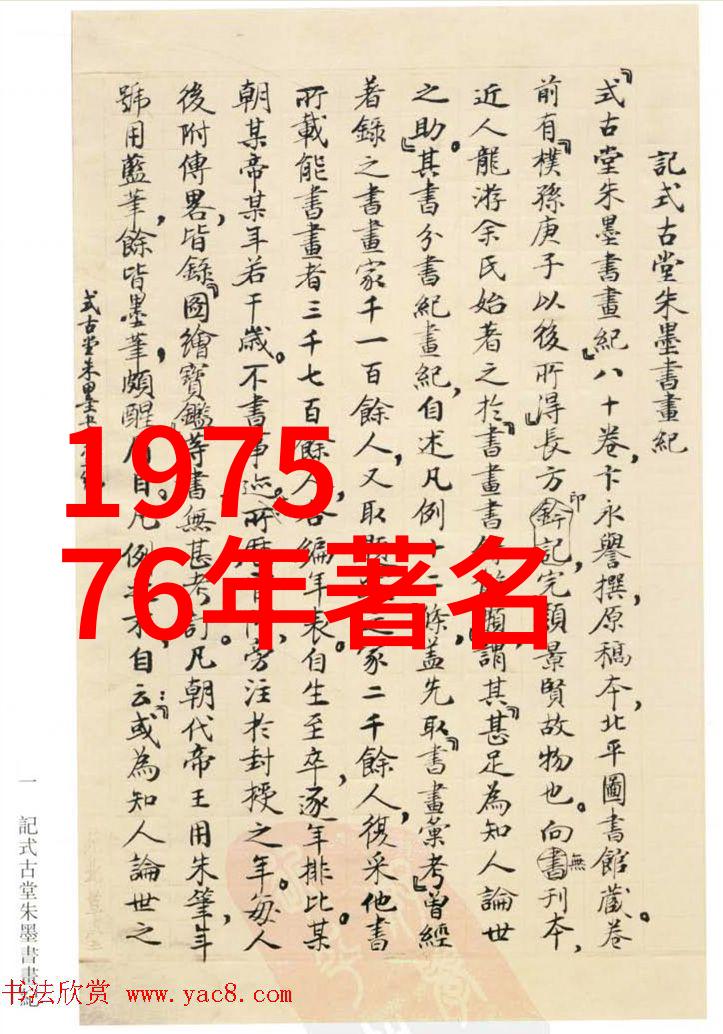 記式古堂朱墨書畫紀
『式古堂朱墨書畫紀』八十卷，卞永譽撰，原稿本，北平圖書館藏。卷
前有『樸孫庚子以後所得』長方印記，完顏景賢故物也。向無刊本，
近人龍游余氏始著之於『書畫書 謂其『甚足為知人論世
之助』。其書分書紀畫紀，自述凡例十二條，蓋先取『書畫彙考』曾經
著錄之書畫家千一百餘人，又取 家二千餘人，復采他書
所載能書畫者三千七百餘人，各編年表。自生至卒，逐年排比某
朝某帝某年若干歲。不書事迹，所歷官 旁注於封授之年。每人
後附傳畧，皆錄『圖繪寶鑑』等書，無甚考訂。凡朝代帝王用朱筆，年
號用藍筆，餘皆墨筆，頗醒眉目。凡例 自云：『或為知人論世之
式古堂朱墨書畫紀
1975
76年著名
一
記式古堂朱墨書畫紀
书法欣赏 www.yac8.com